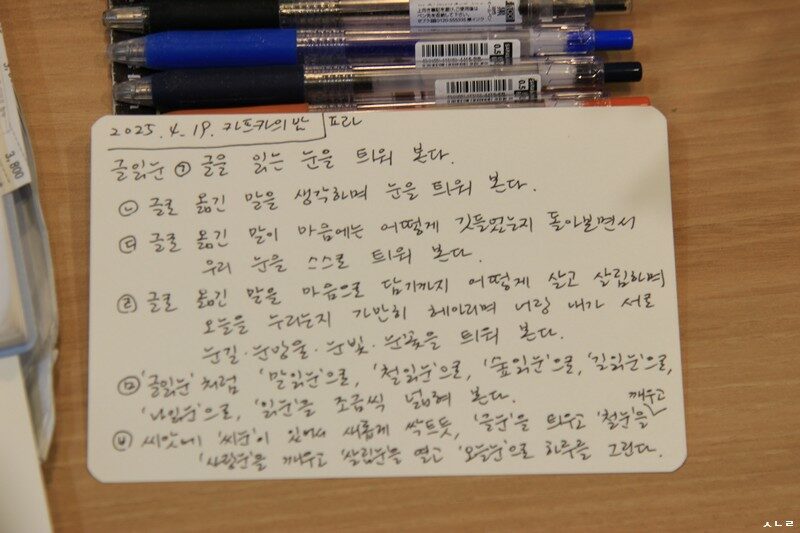 2025. 4. 19. 카프카의밤 프라
글읽눈 ㉠ 글을 읽는 눈을 틔워 본다.
㉡ 글로 옮긴 말을 생각하며 눈을 틔워 본다.
㉢ 글로 옮긴 말이 마음에는 어떻게 깃들었는지 돌아보면서
우리 눈을 스스로 틔워 본다.
㉣ 글로 옮긴 말을 마음으로 담기까지 어떻게 살고 살림하며
오늘을 누리는지 가만히 헤아리며 너랑 내가 서로
눈길·눈망울·눈빛·눈꽃을 틔워 본다.
㉤ '글읽눈'처럼 '말읽눈'으로, '철읽눈'으로, '숲읽눈'으로, '길읽눈'으로,
'나읽눈'으로, '읽눈'을 조금씩 넓혀 본다.
깨우고
㉥ 씨앗에 '씨눈'이 있어서 새롭게 싹트듯, '글눈'을 틔우고 '철눈'을
'사랑눈'을 깨우고 '살림눈'을 열고 '오늘눈'으로 하루를 그린다.
0.5
0.5
3,800
ㅅㄴㄹ